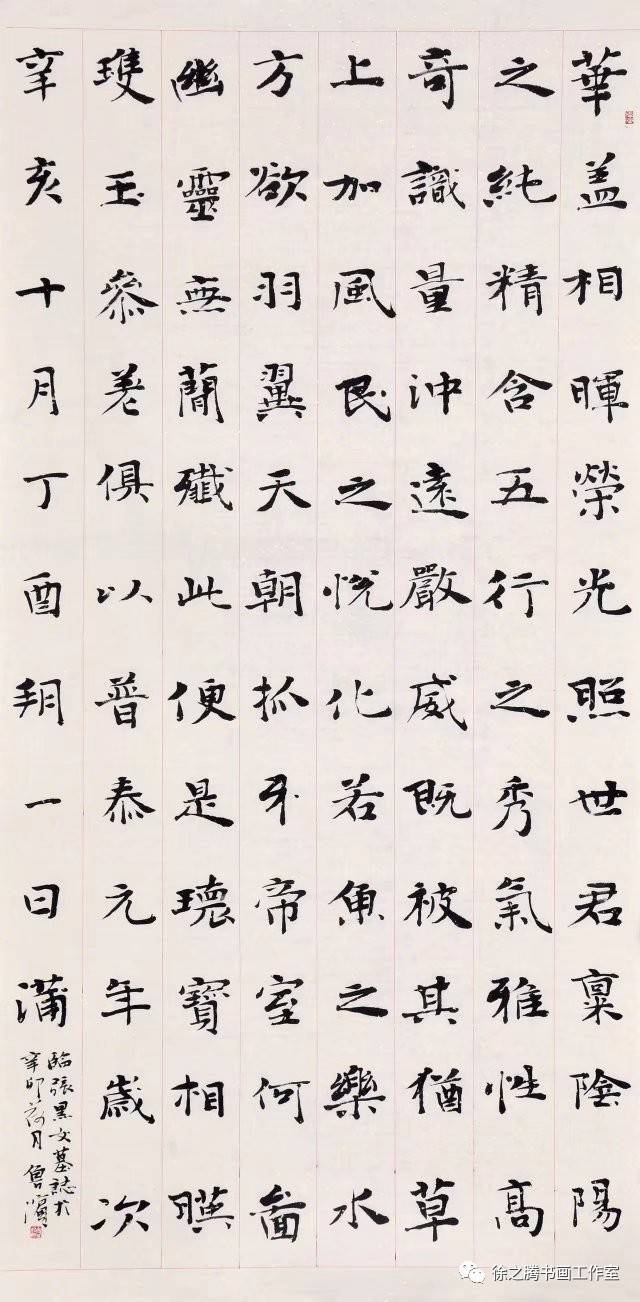 華盖相暉榮光照世君稟陰陽
之純精含五行之秀氣雅性高
奇識量沖遠嚴威既被其猶草
上加風民之悅化若魚之樂水
方欲羽翼天朝抓牙帝室何啚
幽靈無蕳殲此便是瓌寶相暎
䨇玉叅差俱以普泰元年歲次
辛亥十月丁酉朔一日蒲
臨張黑女墓誌於
辛卯荷月魯濱
徐之腾书画工作室